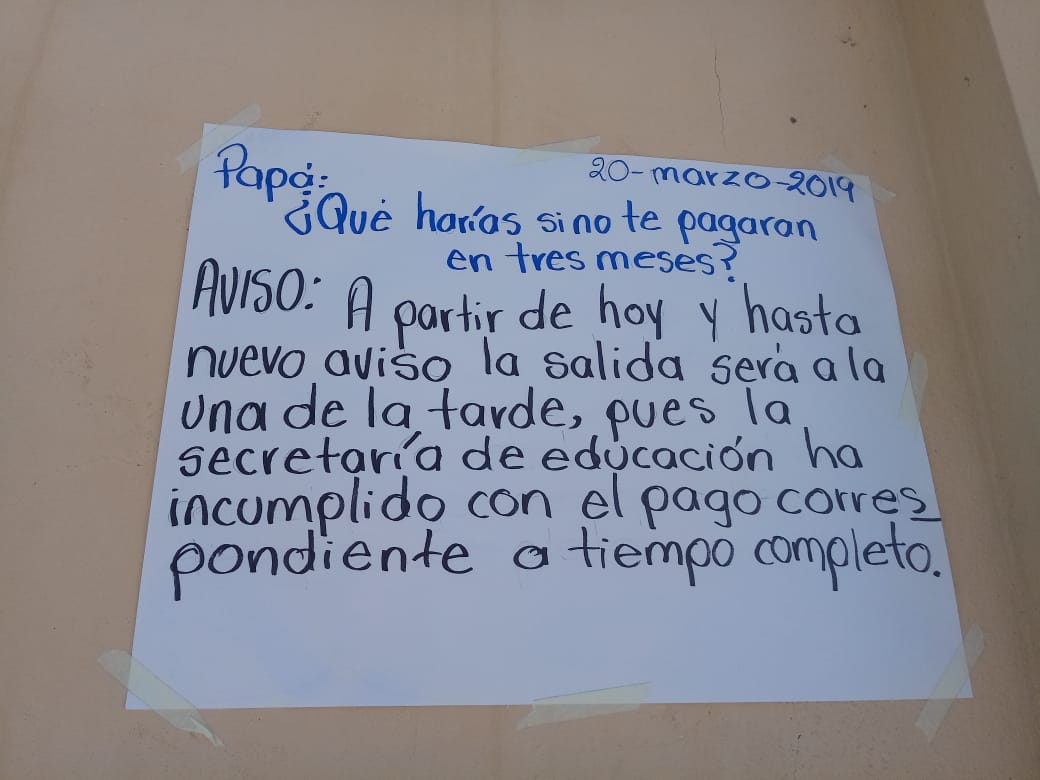 Papá: 20-marzo-2019
¿Qué harías si no te pagaran
en tres meses?
AVISO: A partir de hoy y hasta
nuevo aviso la salida será a la
una de la tarde, pues la
secretaría de educación ha
incumplido con el pago corres_
pondiente a tiempo completo.